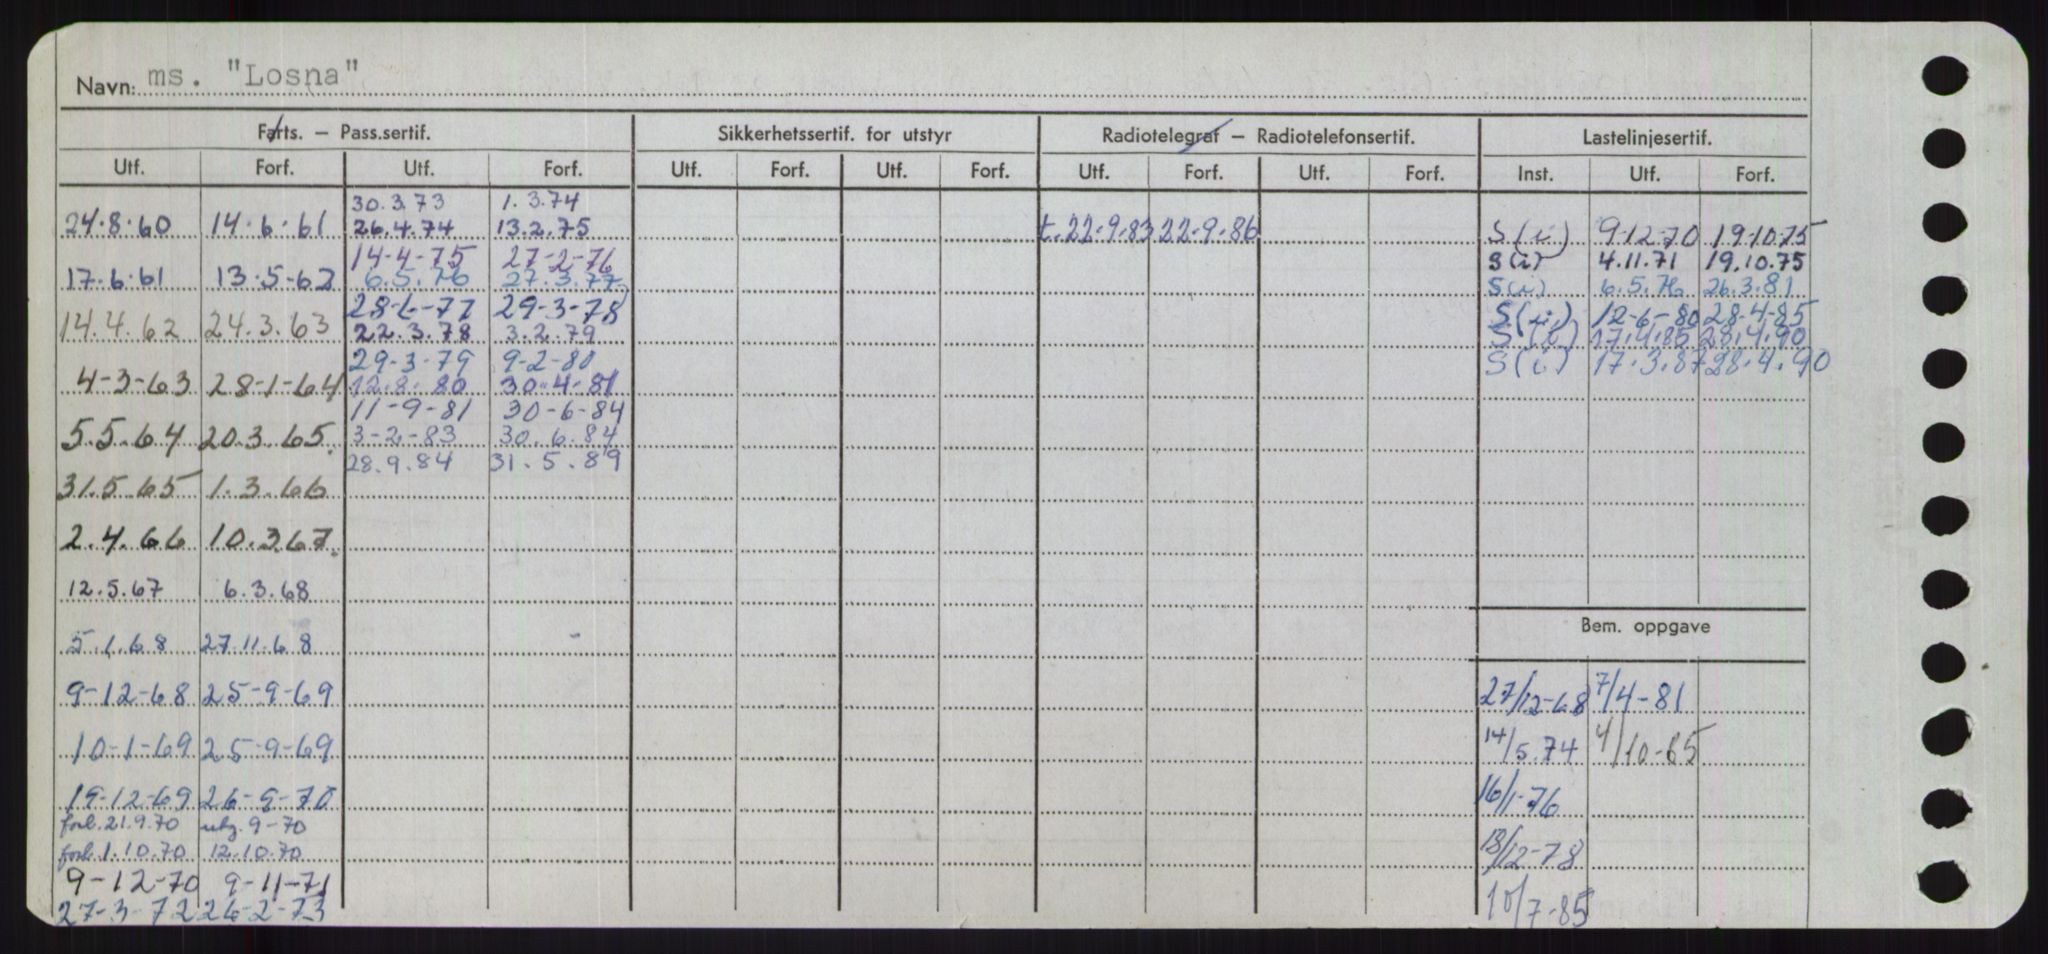 Navn: ms. "Losna"
Farts. – Pass.sertif. Sikkerhetssertif. for utstyr Radiotelegraf – Radiotelefonsertif. Lastelinjesertif.
Utf. Forf. Utf. Forf. Utf. Forf. Utf. Forf. Utf. Forf. Utf. Forf. Inst. Utf. Forf.
30.3.73 1.3.74
24.8.60 14.6.61 26.4.74 13.2.75 t. 22.9.83 22.9.86 S(i) 9.12.70 19.10.75
14-4-75 27-2-76 S(i) 4.11.71 19.10.75
17.6.61 13.5-62 6.5.76 27.3.77 S(i) 6.5.76 26.3.81
28-6-77 29-3-78 S(i) 12-6-80 28-4-85
14.4.62 24.3.63 22.3.78 3.2.79 S(i) 17.4.85 28.4.90
29-3-79 9-2-80 S(i) 17.3.87 28.4.90
4-3-63 28-1-64 12.8.80 30.4.81
11-9-81 30-6-84
5.5.64 20.3.65. 3-2-83 30.6.84
28.9.84 31.5.89
31.5.65 1.3.66
2.4.66 10.3.67.
12.5.67 6.3.68
5.1.68 27.11.68 Bem. oppgave
9-12-68 25-9-69 27/12-68 7/4-81
10-1-69 25-9-69 14/5.74 4/10-85
19-12-69 26-9-70 16/1-76
forl. 21.9.70 utg. 9-70
forl. 1.10.70 12.10.70 13/12-78
9-12-70 9-11-71
27-3-72 26-2-73 10/7-85